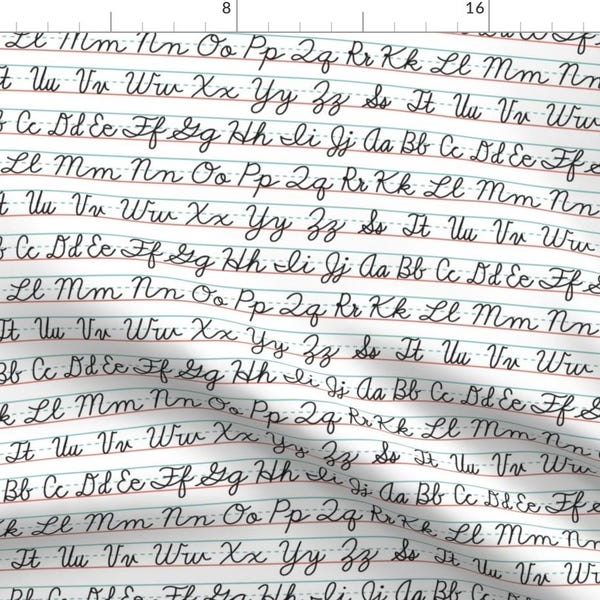 8 16
Ll Mm Nn Oo Pp Qq Rr Kk Ll Mm Nn
t Uu Vv Ww Xx Yy Zz Ss Tt Uu Vv Ww
b Cc Dd Ee Ff Gg Hh Ii Jj Aa Bb Cc Dd Ee Ff
Ll Mm Nn Oo Pp Qq Rr Kk Ll Mm Nn
t Uu Vv Ww Xx Yy Zz Ss Tt Uu Vv Ww
b Cc Dd Ee Ff Gg Hh Ii Jj Aa Bb Cc Dd Ee Ff
Ll Mm Nn Oo Pp Qq Rr Kk Ll Mm Nn
Tt Uu Vv Ww Xx Yy Zz Ss Tt Uu Vv Ww
Bb Cc Dd Ee Ff Gg Hh Ii Jj Aa Bb Cc Dd Ee Ff
k Ll Mm Nn Oo Pp Qq Rr Kk Ll Mm Nn
Tt Uu Vv Ww Xx Yy Zz Ss Tt Uu Vv Ww
Bb Cc Dd Ee Ff Gg Hh Ii Jj Aa Bb Cc Dd Ee Ff
Kk Ll Mm Nn Oo Pp Qq Rr Kk Ll Mm Nn
Tt Uu Vv Ww Xx Yy Zz Ss Tt Uu Vv Ww
Bb Cc Dd Ee Ff Gg Hh Ii Jj Aa Bb Cc